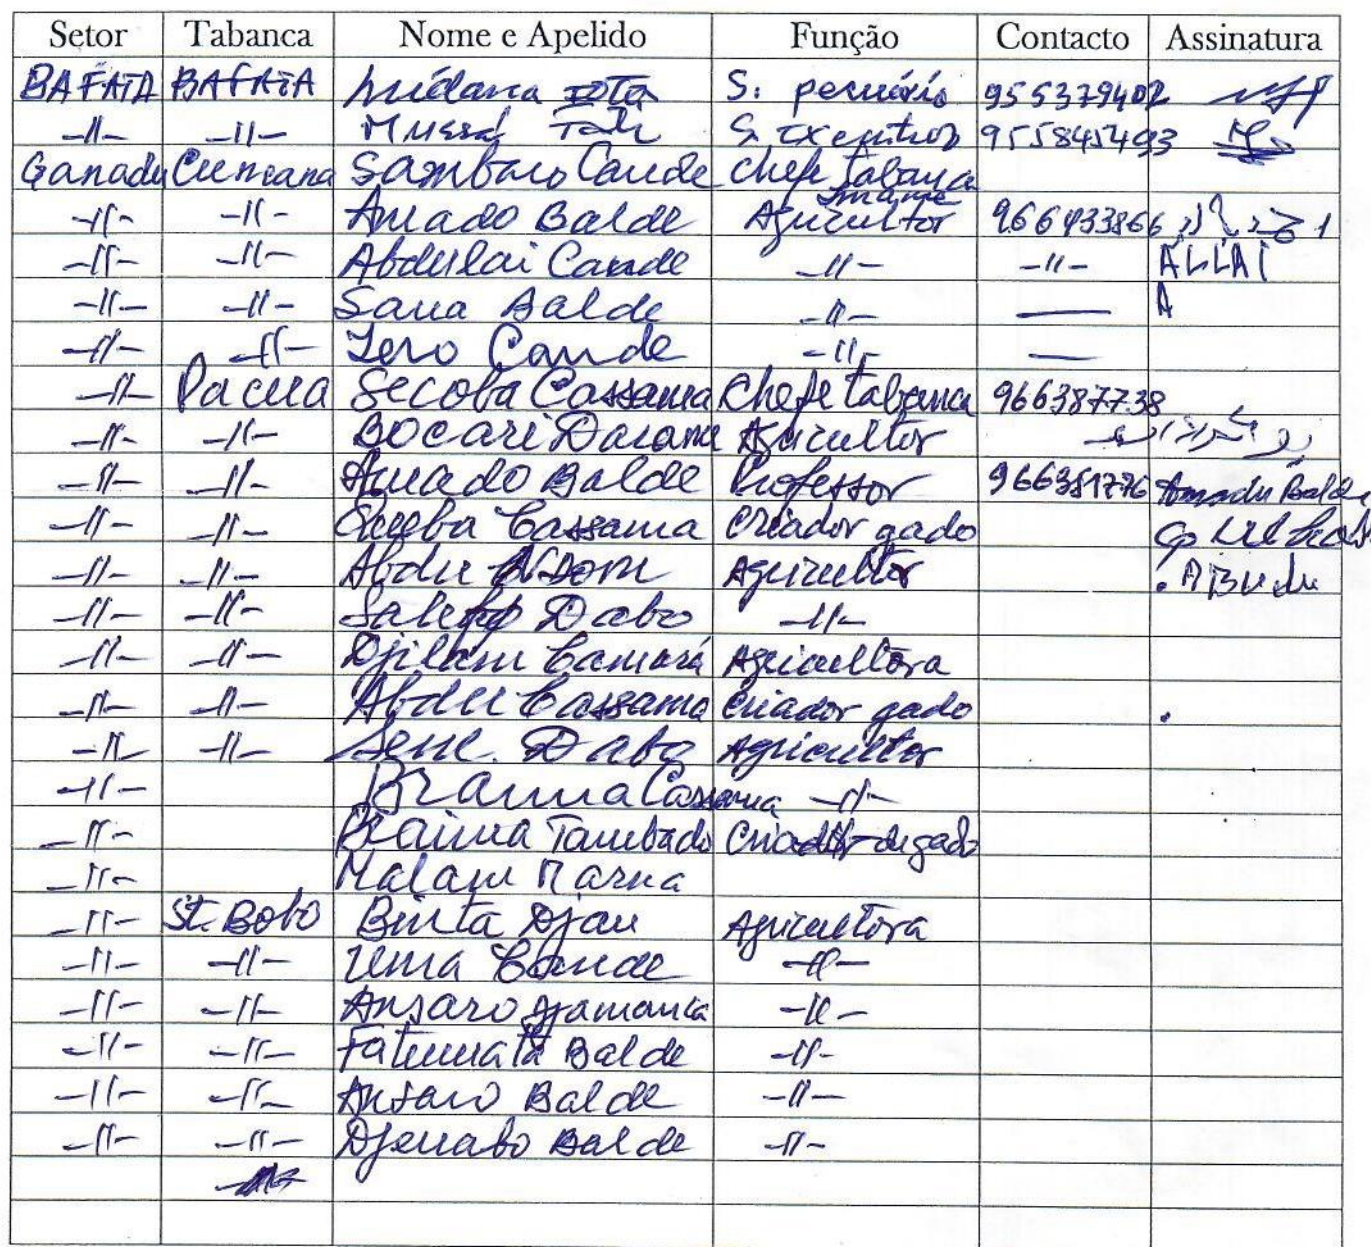 Setor Tabanca Nome e Apelido Função Contacto Assinatura
BAFATA BAFATA S. pecuário 955379402
-//- -//- Mussá 955845493
Ganadu Cuncana Sambaro Cande Chefe Tabanca
-//- -//- Amado Balde Imame Agricultor 966933866
-//- -//- Abdulai Cande -//- -//- ALLAI
-//- -//- Sana Balde -//- — A
-//- -//- Iero Cande -//- —
-//- Pacua Secoba Cassama Chefe tabanca 966387738
-//- -//- Bocari Agricultor
-//- -//- Amado Balde Professor 966351776 Amadu Balde
-//- -//- Cassama Criador gado
-//- -//- Abdu Agricultor ABudu
-//- -//- Dabo -//-
-//- -//- Djilam Camará Agricultora
-//- -//- Abdu Cassama Criador gado
-//- -//- Dabo Agricultor
-//- Braima Cassama -//-
-//- Braima Tambado Criador de gado
-//- Malam
-//- St. Bobo Binta Djau Agricultora
-//- -//- Uma Cande -//-
-//- -//- Ansaro Djamanca -//-
-//- -//- Fatumata Balde -//-
-//- -//- Ansaro Balde -//-
-//- -//- Djenabo Balde -//-